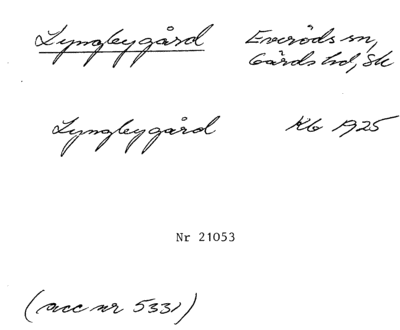 Lyngbygård Everöds sn,
Gärds hd, Sk
Lyngbygård Kb 1925
Nr 21053
(acc nr 5331)